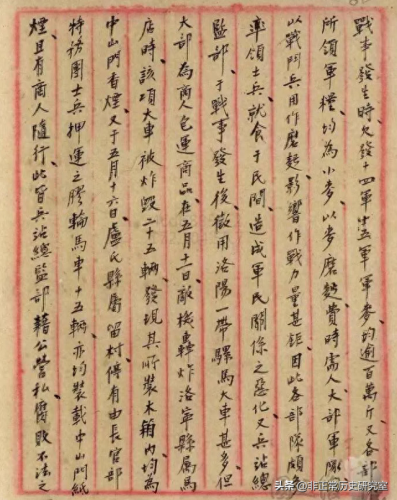 戰事發生時欠發十四軍廿五軍軍麥均逾百萬斤又各部
所領軍糧均為小麥以麥磨麪費時需人大部軍隊
以戰鬥兵用作磨麪影響作戰力量甚鉅因此各部隊頗
率領士兵就食于民間造成軍民關係之惡化又兵站總
監部于戰事發生後徵用洛陽一帶騾馬大車甚多但
大部為商人包運商品在五月十一日敵機轟炸洛寧縣屬馬
店時該項大車被炸毀二十五輛發現其所裝木箱內均為
中山門香煙又于五月十六日盧氏縣屬留村停有由長官部
特務團士兵押運之膠輪馬車十五輛亦均裝載中山門紙
煙且有商人隨行此皆兵站總監部藉公營私腐敗不法之
头条 @非正常历史研究室